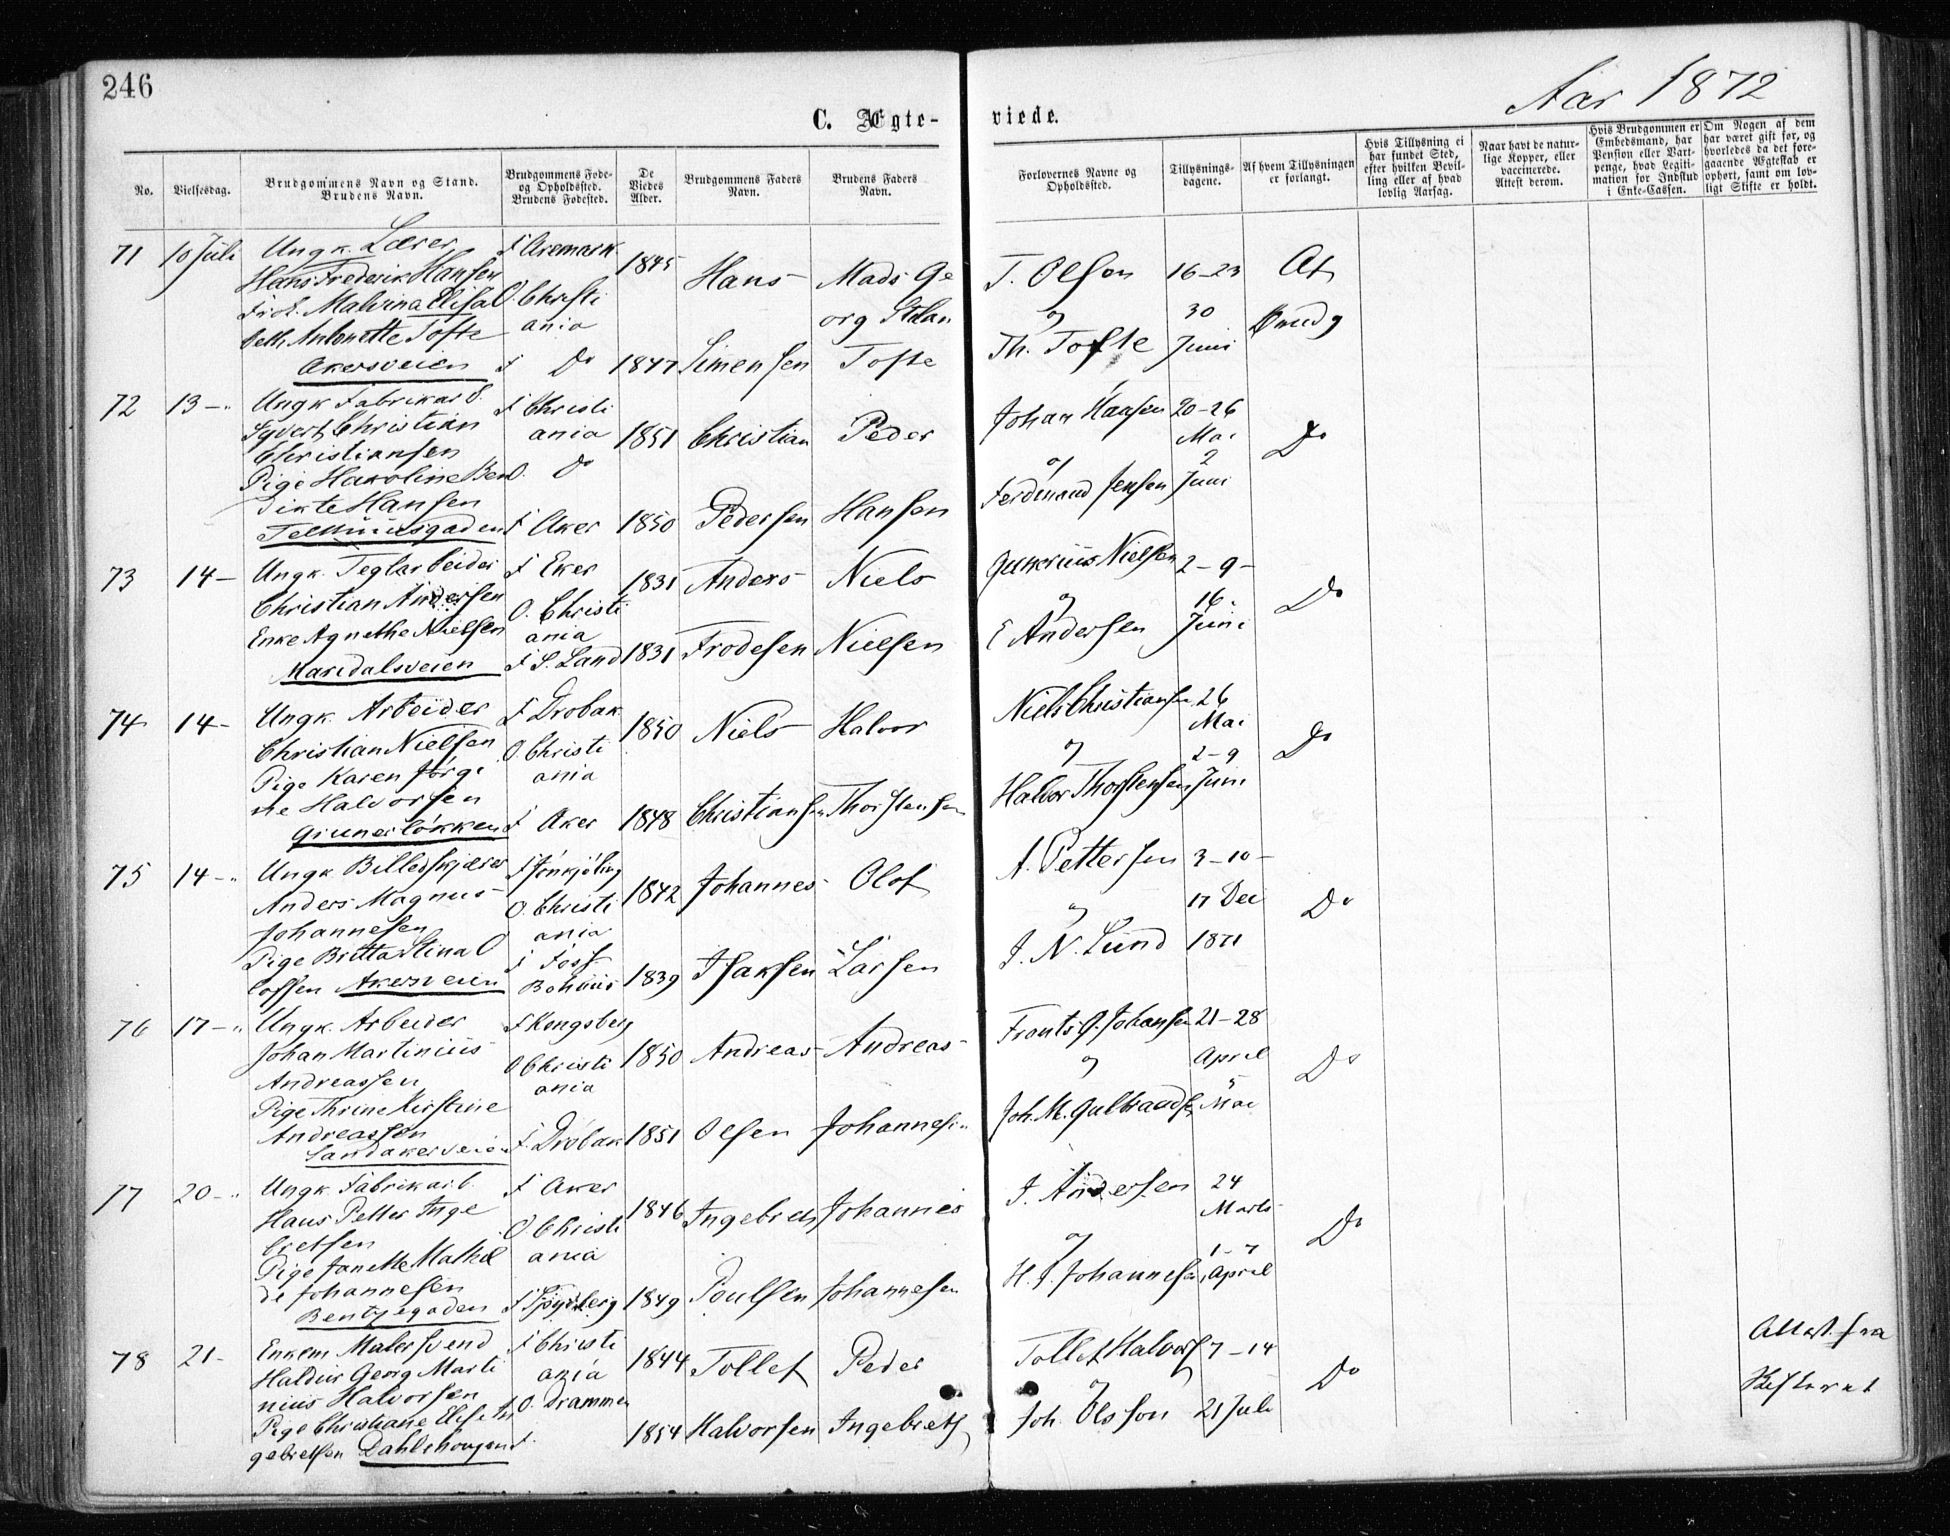 246
Aar 1872
C. Ægte-
viede.
No.
Vielsesdag.
Brudgommens Navn og Stand.
Brudens Navn.
Brudgommens Føde-
og Opholdssted.
Brudens Fødested.
De
Viedes
Alder.
Brudgommens Faders
Navn.
Brudens Faders
Navn.
Forlovernes Navne og
Opholdssted.
Tillysnings-
dagene.
Af hvem Tillysningen
er forlangt.
Hvis Tillysning ei
har fundet Sted,
efter hvilken Bevil-
ling eller af hvad
lovlig Aarsag.
Naar havt de natur-
lige Kopper, eller
vaccinerede.
Attest derom.
Hvis Brudgommen er
Embedsmand, har
Pension eller Vart-
penge, hvad Legiti-
mation for Indskud
i Enke-Cassen.
Om Nogen af dem
har været gift før, og
hvorledes da det fore-
gaaende Ægteskab er
ophørt, samt om lov-
ligt Skifte er holdt.
71 10 Juli
Ungk. Lærer
Hans Frederik Hansen
Frøk. Malvina Elisa
beth Antonette Tofte
Akersveien
F Aremark
O. Christi
ania
F Do
1845
1847
Hans
Simensen
Mads Ge
org Stilan
Tofte
T. Olsen
og
Th. Tofte
16-23
30
Juni
Af
Brudg
72 13 - "
Ungk Fabrikarb.
Syvert Christian
Christiansen
Pige Karoline Ben
dikte Hansen
Telthusgaden
F Christi
ania
O. Do
F Aker
1851
1850
Christian
Pedersen
Peder
Hansen
Johan Hansen
og
Ferdinand Jensen
20-26
Mai
2
Juni
Do
73 14 -
Ungk. Teglarbeider
Christian Andersen
Enke Agnethe Nielsen
Maridalsveien
F Eker
O. Christi
ania
F S. Land
1831
1831
Anders
Frodesen
Niels
Nielsen
Gunerius Nielsen
og
E Andersen
2-9-
16.
Juni
Do
74 14 -
Ungk. Arbeider
Christian Nielsen
Pige Karen Jørgi
ne Halvorsen
Grünerløkken
F Drobak
O. Christi
ania
F Aker
1850
1848
Niels
Christiansen
Halvor
Thorstensen
Niels Christiansen
og
Halvor Thorstensen
26
Mai
2-9
Juni
Do
75 14 - "
Ungk Billedskjærer
Anders Magnus
Johannesen
Pige Britta Stina O
lofsen Akersveien
F Jønkjøbing
O. Christi
ania
F Foss
Bohuus
1842
1839
Johannes
Isaksen
Olof
Larsen
A. Pettersen
og
J. N. Lund
3-10-
17 Dec
1871
Do
76 17 - "
Ungk. Arbeider
Johan Martinius
Andreassen
Pige Thrine Kirstine
Andreassen
Sandakerveien
F Kongsberg
O Christi
ania
F. Drobak
1850
1851
Andreas
Olsen
Andreas
Johannesen
Frants G. Johansen
og
Joh. M. Gulbrands
21-28
April
5
Mai
Do
77 20 - "
Ungk. Fabrikarb.
Hans Petter Inge
bretsen
Pige Janette Mathil
de Johannesen
Bentzegaden
F Aker
O Christi
ania
1846
1849
Ingebret
Poulsen
Johannes
Johannesen
J. Andersen
og
H. J. Johannesen
24
Marts
1-7
April
Do
78 21 -
Enkem Malersvend
Haldur Georg Marti
nius Halvorsen
Pige Christiane Elise In
gebretsen Dahlehougen
F Christi
ania
O. Drammen
F.
1844
1854
Tollef
Halvorsen
Peder
Ingebrets
Tollef Halvors
og
Joh. Olsson
7-14
21 Juli
Do
Attest fra
Skifteret